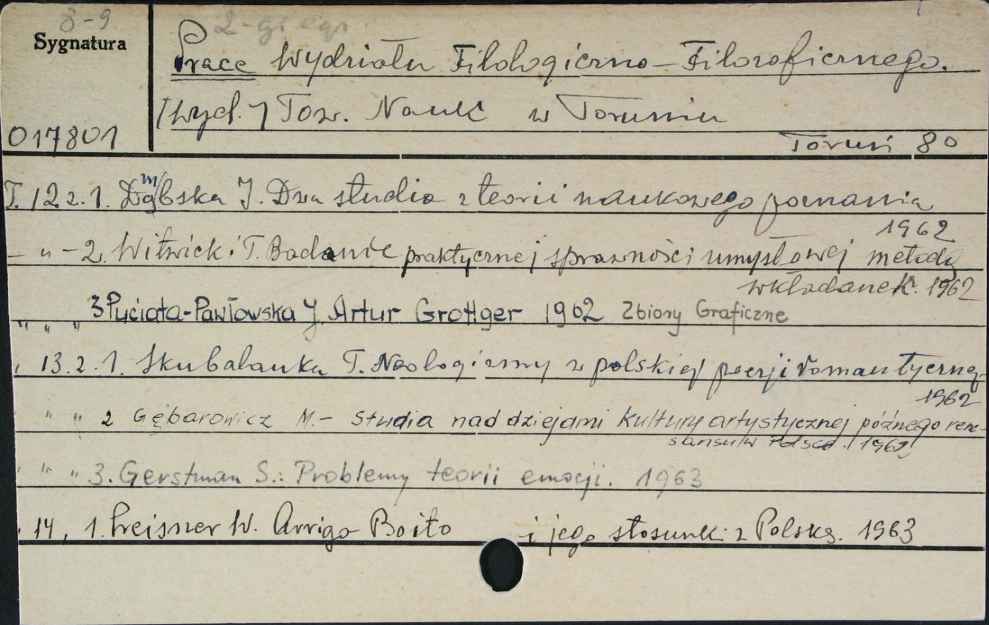 8-9
2-gi egz
Sygnatura
Prace Wydziału Filologiczno-Filozoficznego.
[wyd.] Tow. Nauk w Toruniu
017801
Toruń 80
T. 12 z. 1. Dąmbska I. Dwa studia z teorii naukowego poznania
1962
– " – 2. Witwicki T. Badanie praktycznej sprawności umysłowej metodą
wkładanek. 1962
" " " 3 Puciata-Pawłowska J. Artur Grottger 1962 Zbiory Graficzne
" 13. z. 1. Skubalanka T. Neologizmy w polskiej poezji romantycznej
1962
" " " 2 Gębarowicz M. – Studia nad dziejami kultury artystycznej późnego rene-
sansu w Polsce. 1962
" " " 3. Gerstman S.: Problemy teorii emocji. 1963
" 14, 1. Preisner W. Arrigo Boito i jego stosunki z Polską. 1963